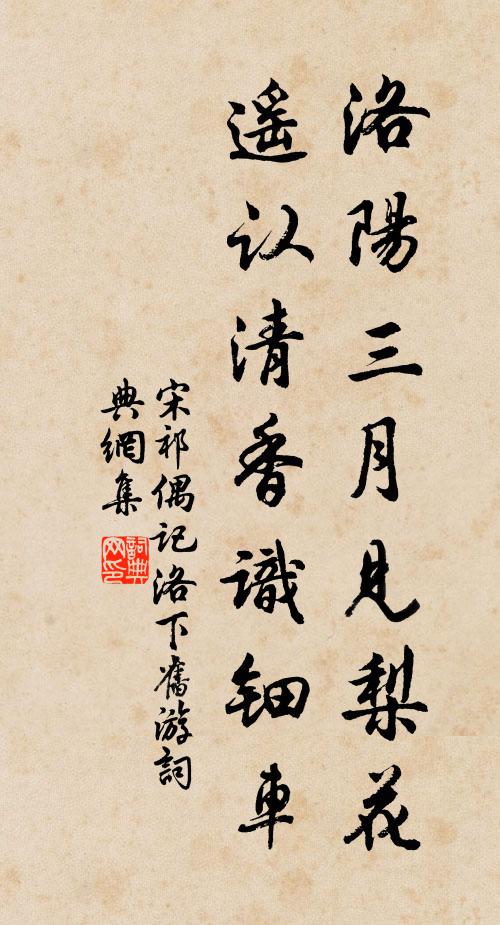 洛陽三月見梨花
遥认清香識钿車
宋祁偶记洛下舊游詞
典網集
詞典網印